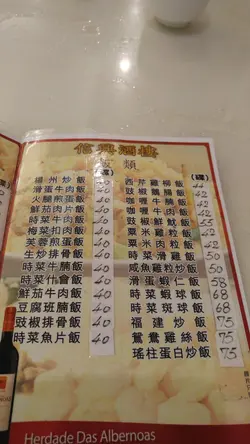 信興酒樓
飯類
(碟)
揚州炒飯 40
滑蛋牛肉飯 40
火腿煎蛋飯 40
鮮茄牛肉飯 40
時菜肉片飯 40
梅菜扣肉飯 40
芙蓉煎蛋飯 40
生炒排骨飯 40
時菜牛腩飯 40
時菜什會飯 40
鮮茄牛肉飯 40
豆腐班腩飯 40
豉椒排骨飯 40
時菜魚片飯 40
(碟)
西芹雞柳飯 44
咖喱牛腩飯 42
豉椒鮮魷飯 42
粟米肉粒飯 42
時菜 飯 50
咸魚雞粒炒飯 50
滑蛋蝦仁飯 58
時菜蝦球飯 68
時菜斑球飯 68
福建炒飯 75
鴛鴦雞絲飯 75
瑤柱蛋白炒飯 75
Herdade Das Albernoas